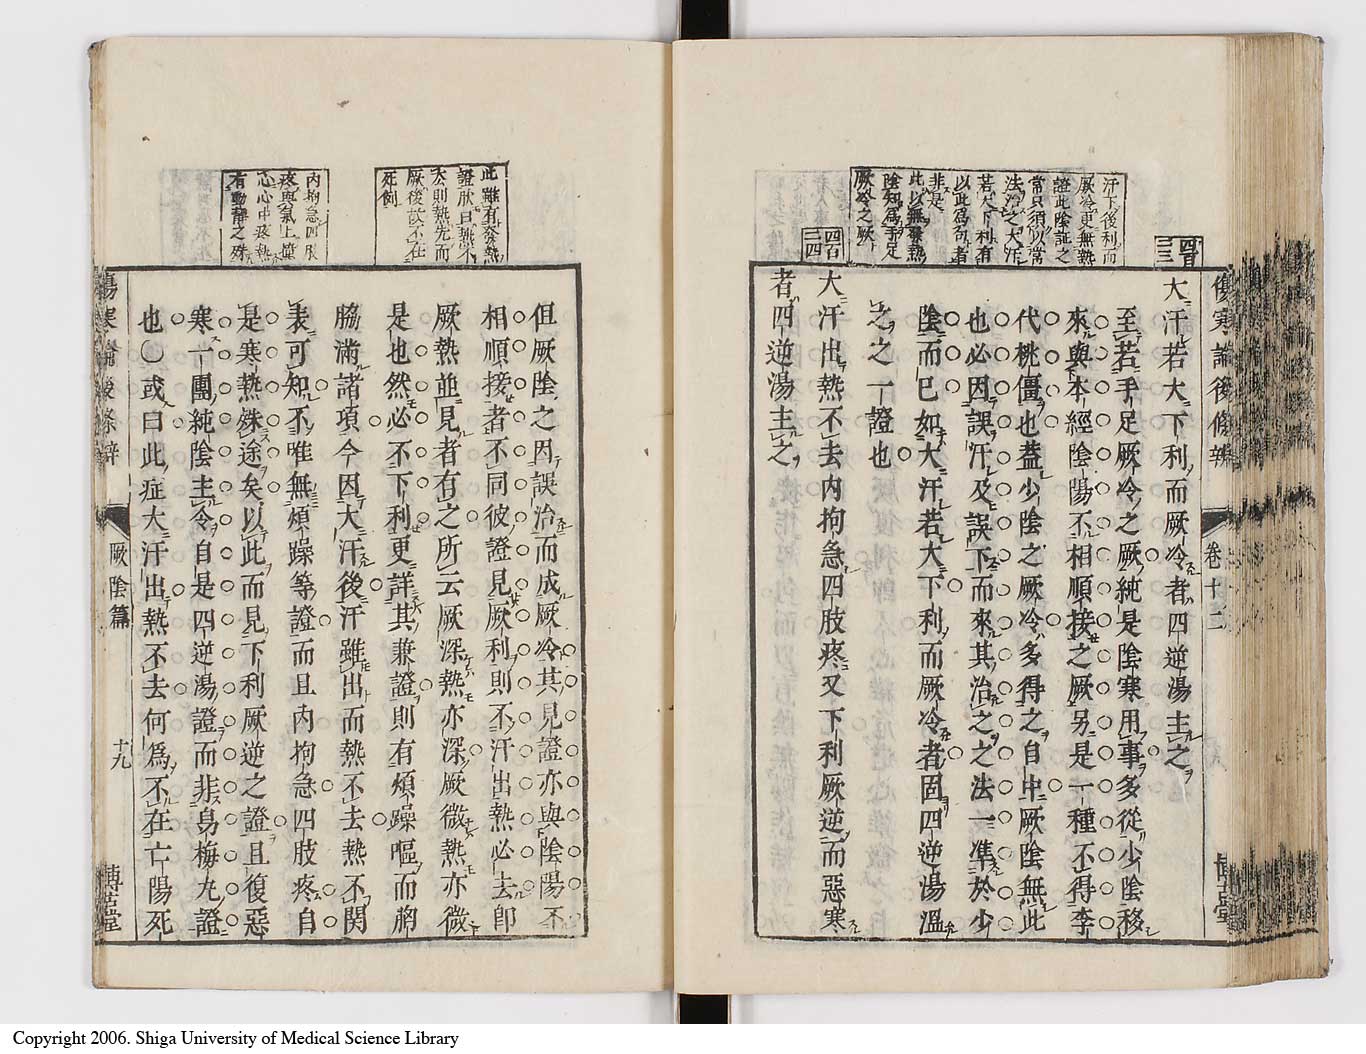 傷寒論後條辨
卷十二
博古堂
四百三三
汗下後利而
厥冷更無熱
證此陰証之
常只須以常
法治之大汗
若大下利有
以此爲句者
非是
此以無發熱
陰知爲手足
厥冷之厥
四百三四
大汗若大下利而厥冷者四逆湯主之
至若手足厥冷之厥純是陰寒用事多從少陰移
來與本經陰陽不相順接之厥另是一種不得李
代桃僵也蓋少陰之厥冷多得之自中厥陰無此
也必因誤汗及誤下而來其治之之法一準於少
陰而已如大汗若大下利而厥冷者固四逆湯溫
之之一證也
大汗出熱不去内拘急四肢疼又下利厥逆而惡寒
者四逆湯主之
此雖有發熱
證然曰熱不
去則熱先而
厥後故不在
死例
内拘急四肢
疼與氣上撞
心心中疼熱
有動靜之殊
但厥陰之因誤治而成厥冷其見證亦與陰陽不
相順接者不同彼證見厥利則不汗出熱必去卽
厥熱並見者有之所云厥深熱亦深厥微熱亦微
是也然必不下利更詳其兼證則有煩躁嘔而胸
脇滿諸項今因大汗後汗雖出而熱不去熱不関
表可知不唯無煩躁等證而且内拘急四肢疼自
是寒熱殊途矣以此而見下利厥逆之證且復惡
寒一團純陰主令自是四逆湯證而非烏梅丸證
也〇或曰此症大汗出熱不去何爲不在亡陽死
傷寒論後條辨
厥陰篇
十九
博古堂
Copyright 2006. Shiga University of Medical Science Library